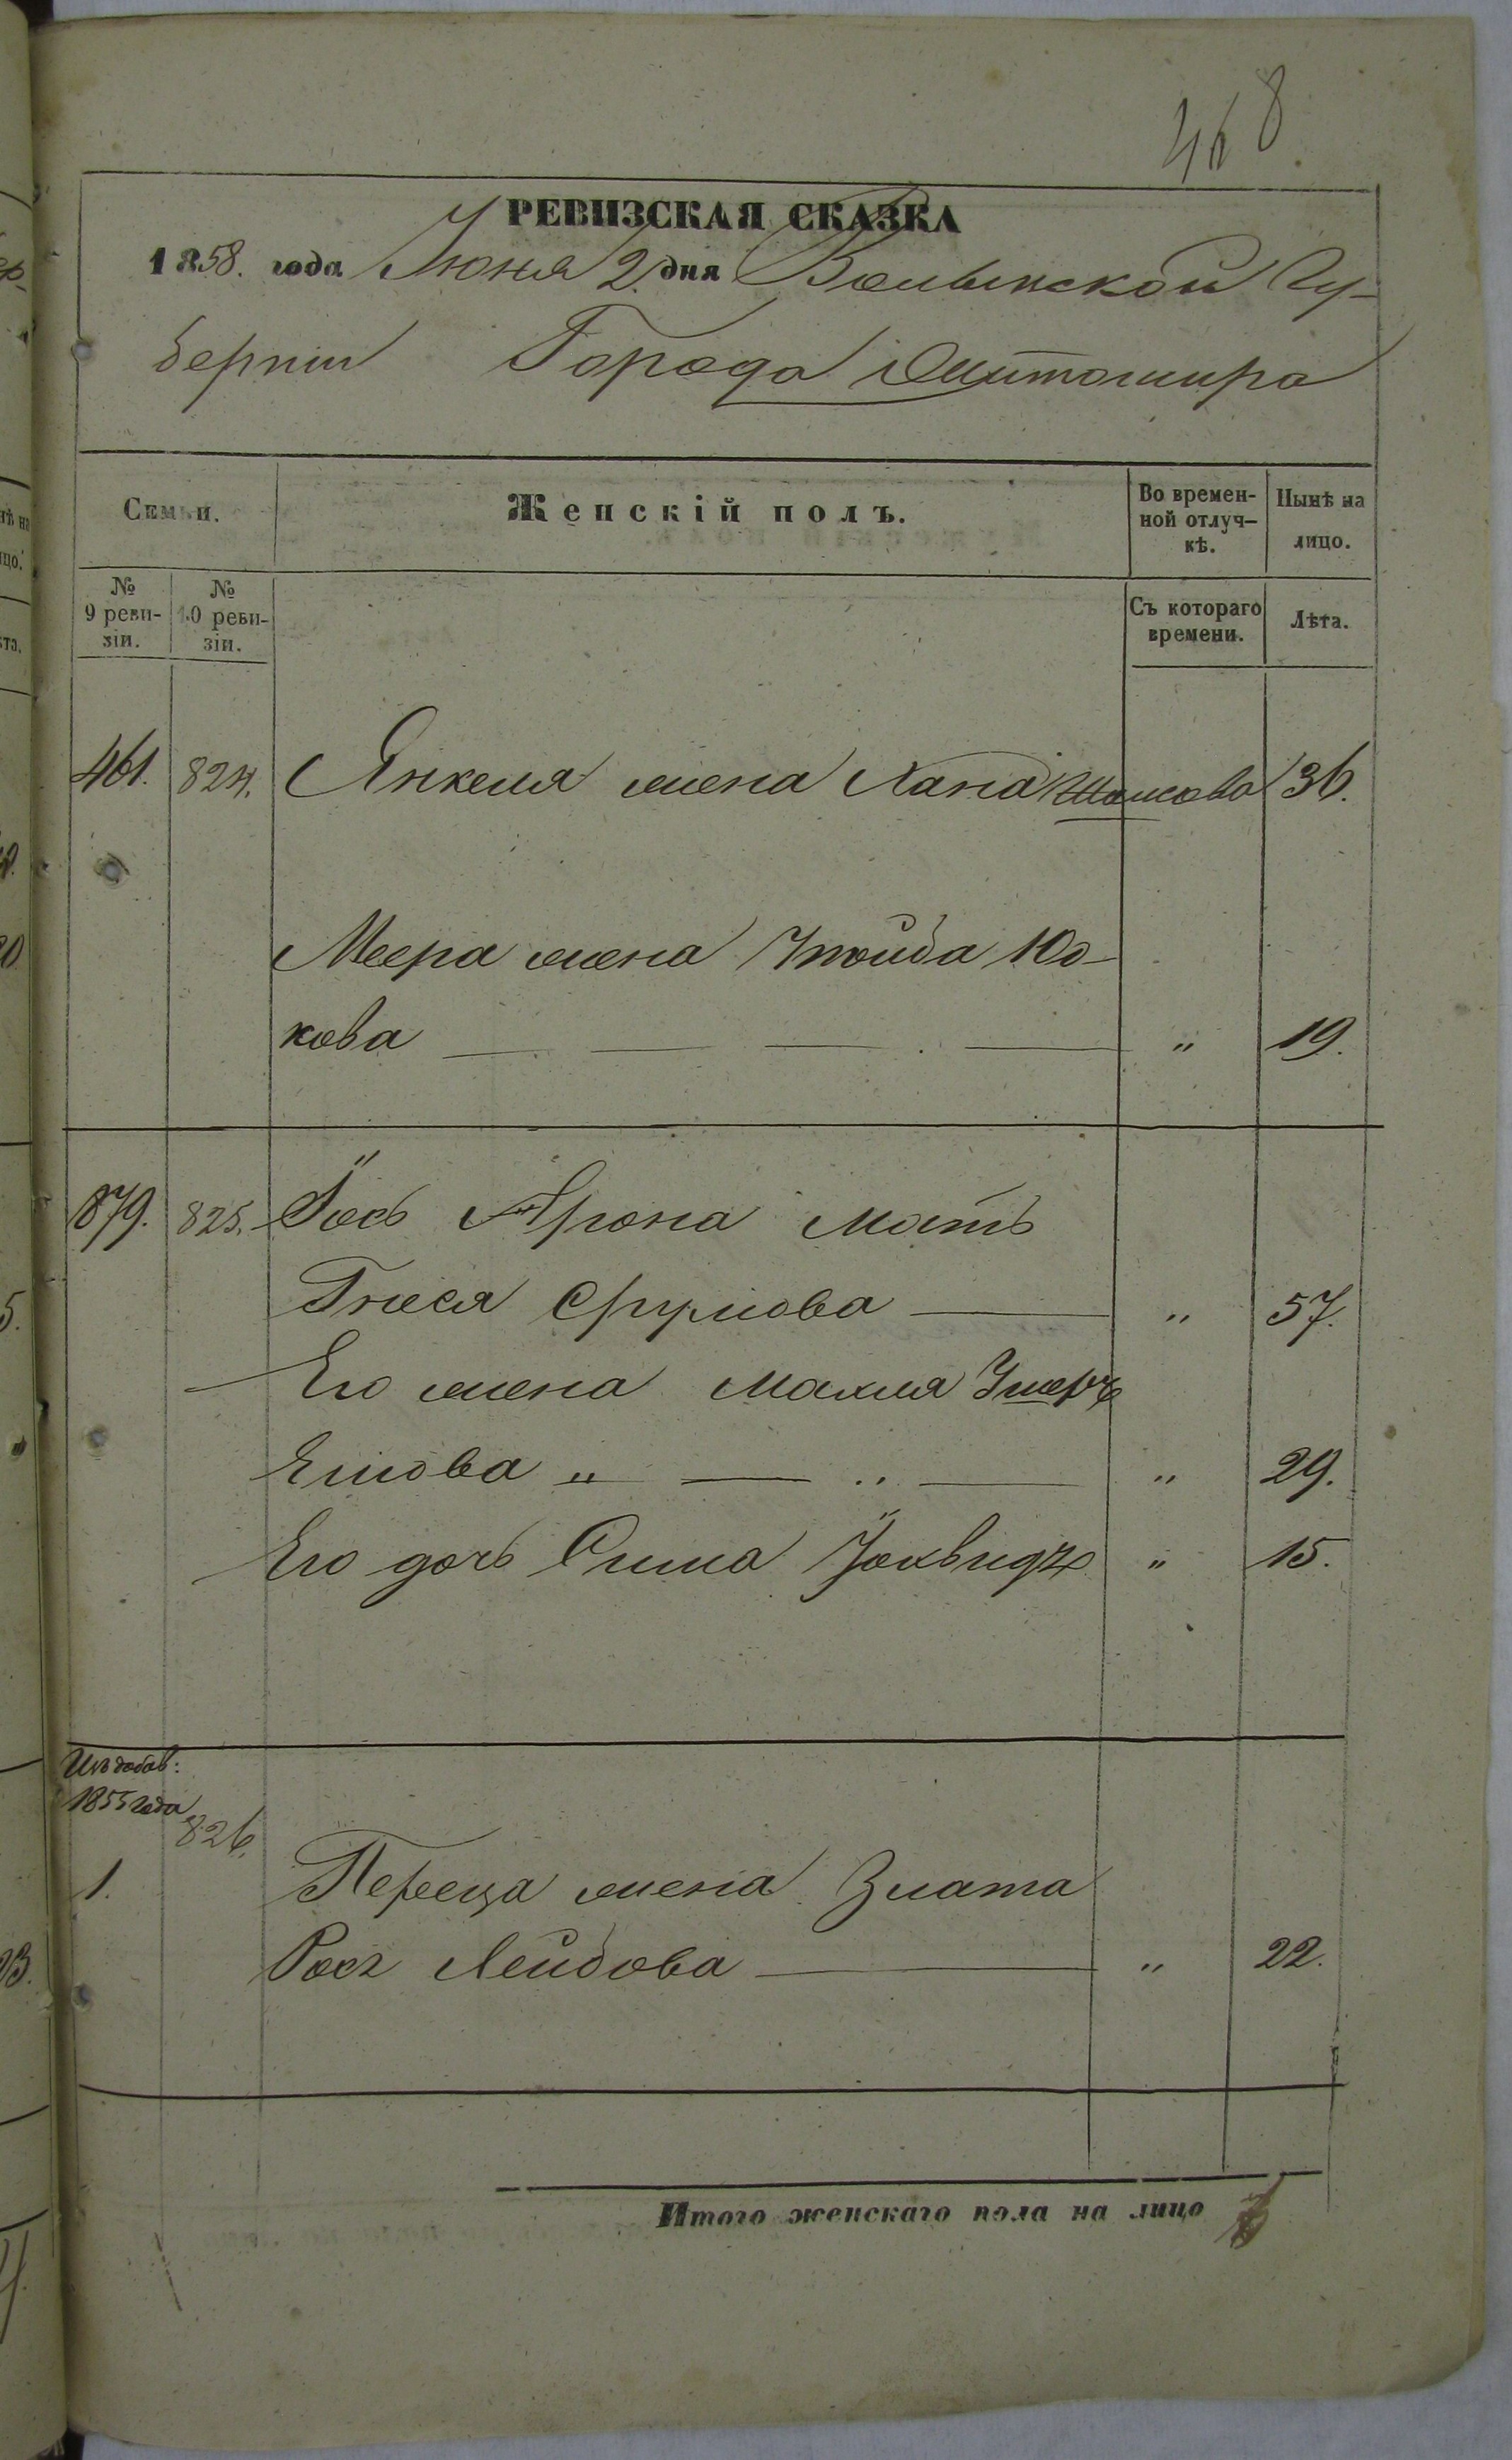 468
РЕВИЗСКАЯ СКАЗКА
1858. года Июня 2. дня Волынской Гу-
берніи Города Житомира
Семьи.
Женскій полъ.
Во времен-
ной отлуч-
кѣ.
Нынѣ на
лицо.
№
9 реви-
зіи.
№
10 реви-
зіи.
Съ котораго
времени.
Лѣта.
461. 824. Янкеля жена Хана 36.
Меера жена
кова " 19.
879. 825. Іось Арона мать
Гнеся Срулова " 57.
Его жена Махля
" 29.
Его дочь Сима " 15.
Изъ добав:
1855 года
826.
1. Переца жена Злата
Лейбова " 22.
Итого женскаго пола на лицо